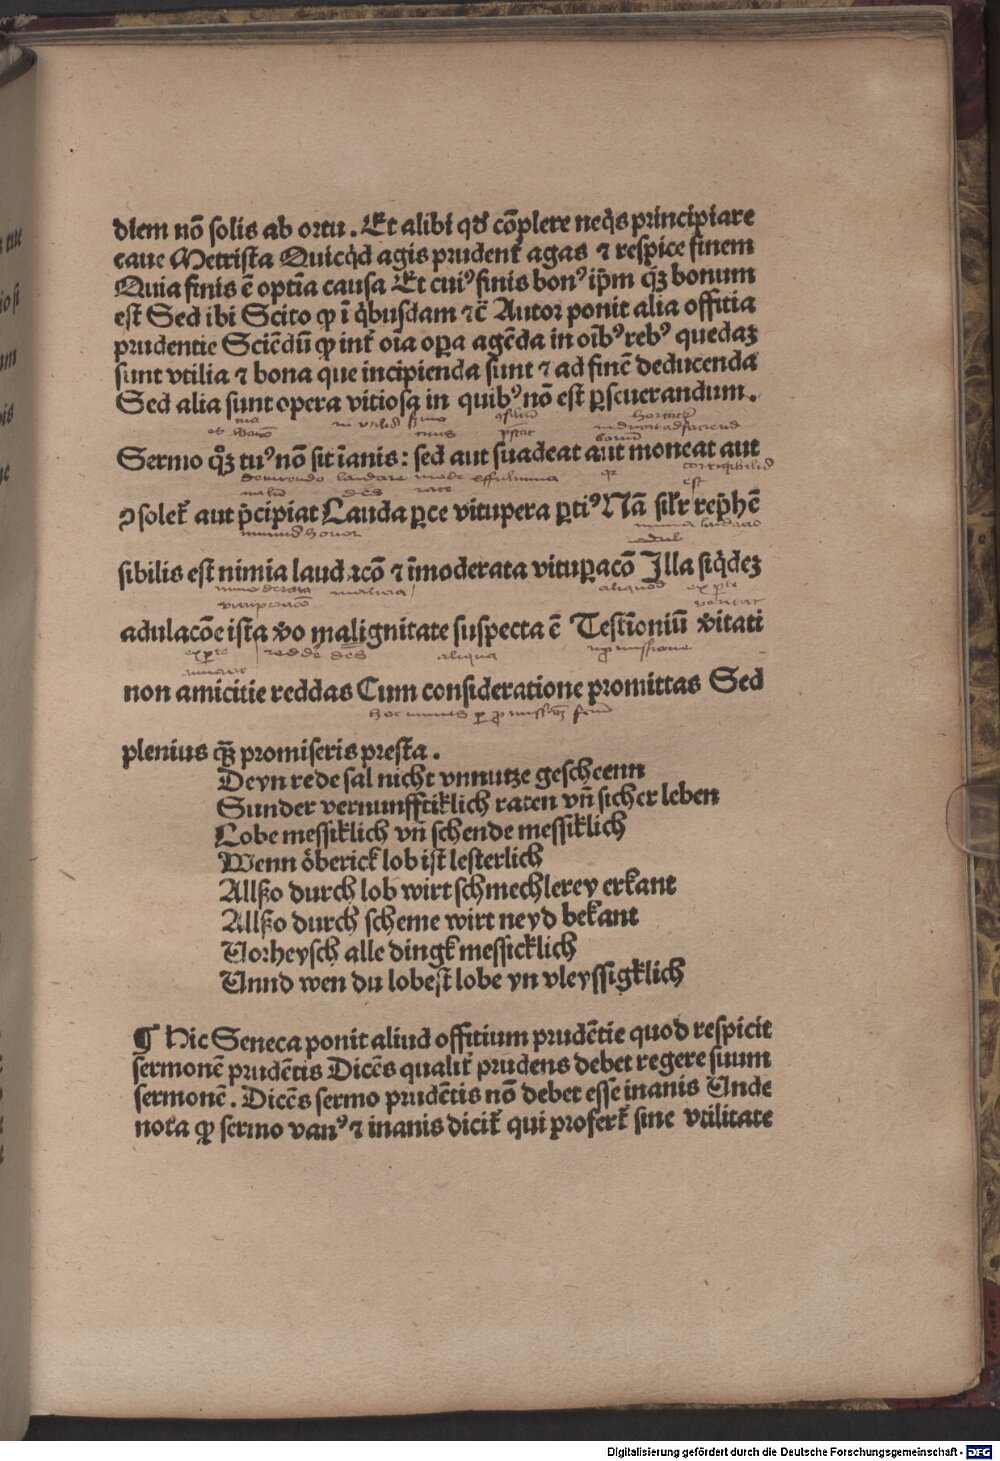 diem nō solis ab ortu. Et alibi qđ cōplere neq̄s principiare
caue Metrista Quicq̄d agis prudent̄ agas ⁊ respice finem
Quia finis ē optīa causa Et cuiꝰ finis bonꝰ ip̄m qꝫ bonum
est Sed ibi Scito ꝙ ī q̄busdam ⁊c̄ Autor ponit alia offitia
prudentie Sciēdū ꝙ int̄ oīa oꝑa agēda in oībꝰ rebꝰ quedaꝫ
sunt vtilia ⁊ bona que incipienda sunt ⁊ ad finē deducenda
Sed alia sunt opera vitiosa in quibꝰ nō est ꝑseuerandum.
Sermo qꝫ tuꝰ nō sit īanis: sed aut suadeat aut moneat aut
ꝯsolet̄ aut p̄cipiat Lauda ꝑce vitupera ꝑtiꝰ Nā sil̄r rep̄hē
sibilis est nimia laudacō ⁊ īmoderata vituꝑacō Illa siq̄deꝫ
adulacōe ista v̄o malignitate suspecta ē Testīoniū v̄itati
non amicitie reddas Cum consideratione promittas Sed
plenius qꝫ̄ promiseris presta.
Deyn rede sal nicht vnnutze gescheenn
Sunder vernunfftiklich raten vn̄ sicher leben
Lobe messiklich vn̄ schende messiklich
Wenn öberick lob ist lesterlich
Allßo durch lob wirt schmechlerey erkant
Allßo durch scheme wirt neyd bekant
Vorheysch alle dingk messicklich
Vnnd wen du lobest lobe yn vleyssigklich
¶ Hic Seneca ponit aliud offitium prudētie quod respicit
sermonē prudētis Dicēs qualit̄ prudens debet regere suum
sermonē. Dicēs sermo prudētis nō debet esse inanis Vnde
nota ꝙ sermo vanꝰ ⁊ inanis dicit̄ qui profert̄ sine vtilitate
Digitalisierung gefördert durch die Deutsche Forschungsgemeinschaft - DFG